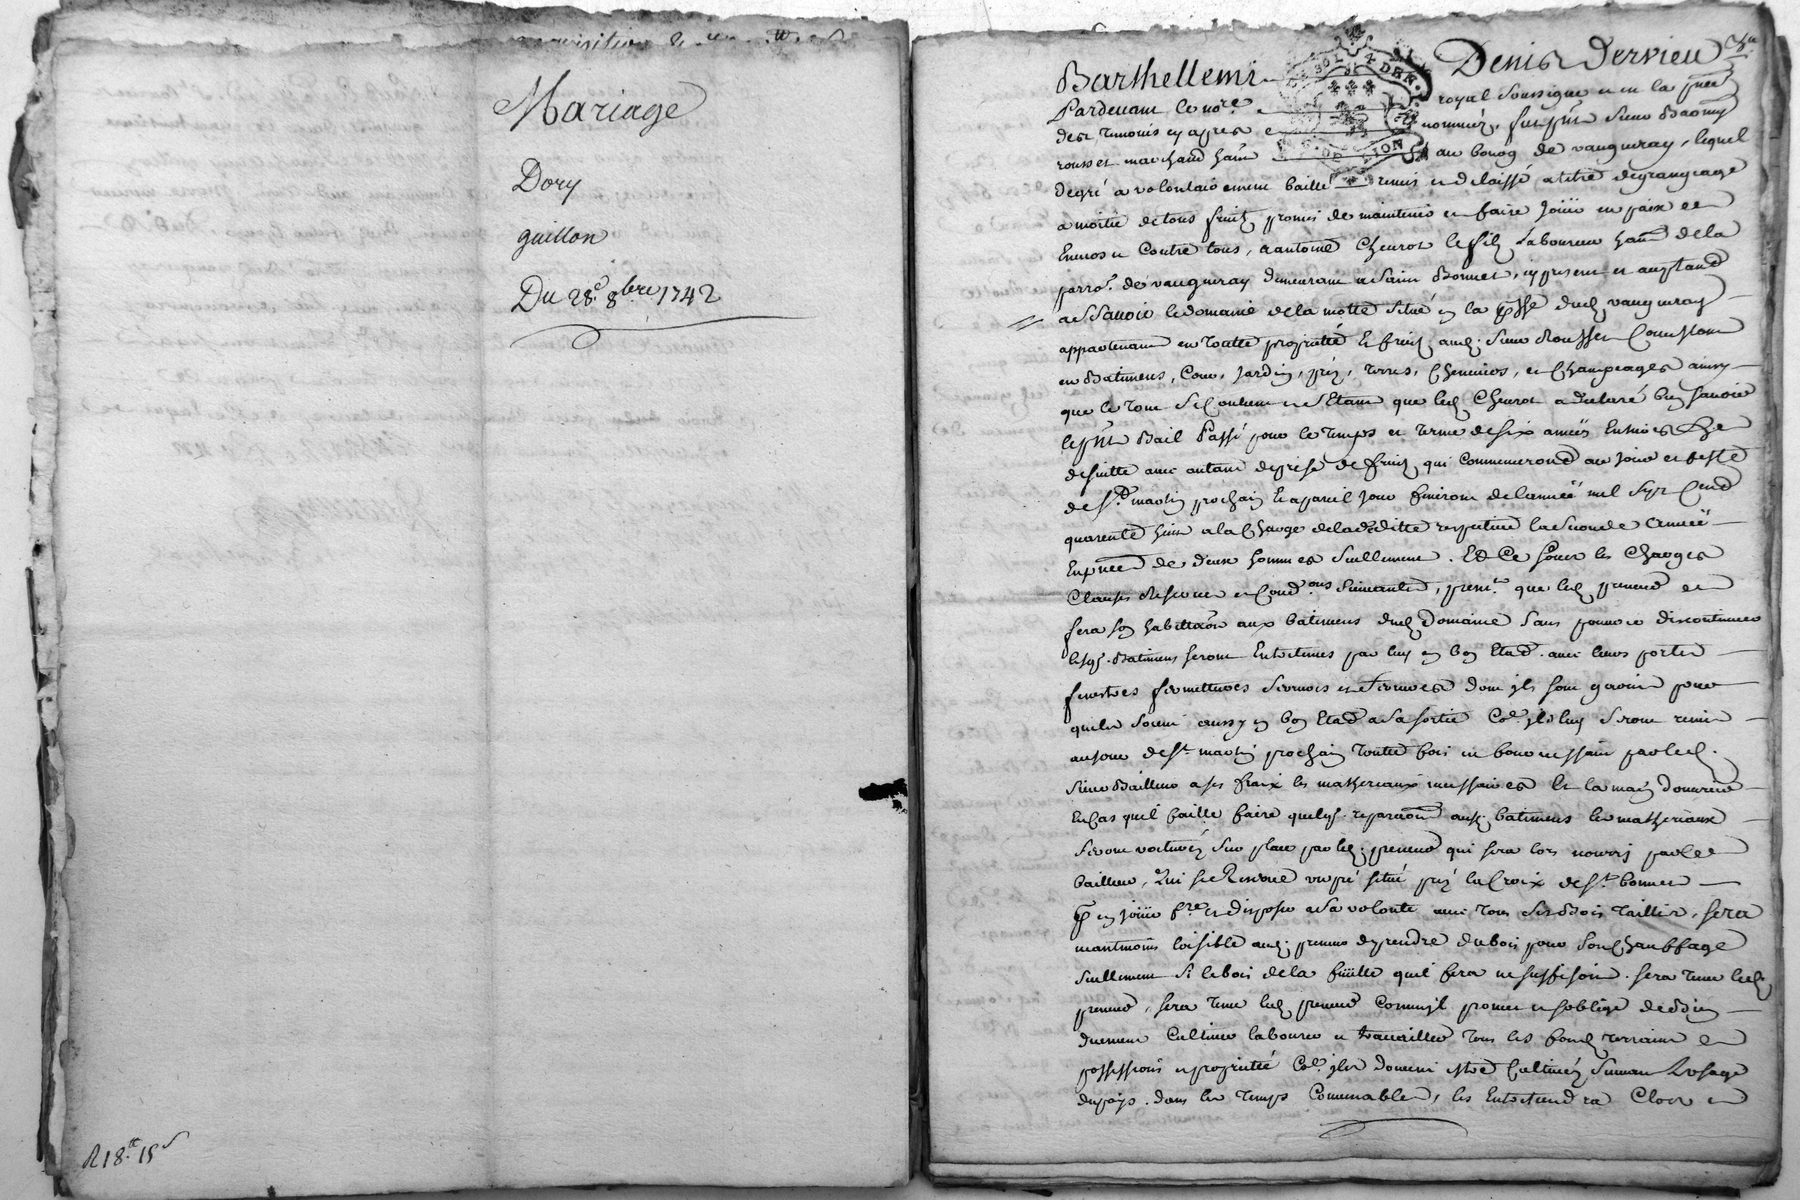 Mariage
Dory
guillon
Du 28e. 8bre 1742
R 18.tt 15 s
Barthellemi Denis Dervieu
Pardevant le nore royal soussigné et en la
des temoins cy apres nommez, fut
rousset marchand au bourg de vaugneray, lequel
de gré a volontairement baillé remis et delaissé a titre de grangeage
a moitié de tous fruits promis de maintenir et faire Joüir en paix
Envers et Contre tous, a antoine le fils Laboureur de la
parro. de vaugneray demeurant a Saint Bonnet, cy present et acceptant
a Sçavoir le domaine de la motte situé en la dud. vaugneray
appartenant en toutte proprieté et fruits aud. Sieur Rousset Consistant
en Batimens, Cour, Jardin, prez, terres, Chenevier, et Champeages ainsy
que le tout Se Contient et S'Etant que led. a declaré bien Sçavoir
le pnt Bail Passé pour le temps et terme de six années
de suitte avec autant de prise de fruits qui Commenceront au Jour et feste
de St. martin prochain Et a pareil Jour finiront de l'année mil Sept Cent
quarente huit a la Charge de la dedditte respective la seconde année
de deux hommes seullement. Et Ce pour les Charges
Clauses Reserves et Condons Suivantes, premt. que led. preneur
fera son habittaon aux batimens dud. Domaine Sans pouvoir discontinuer
lesqs. Batimens seront Entretenus par luy en bon Etat avec leurs portes
fenestres fermettures Serrures et ferrures dont ils sont garnis pour
quils soient aussy en bon Etat a Sa sortie Coe. ils luy Seront remis
au Jour de St. martin prochain toutte fois
Sieur Bailleur a ses fraix les matheriaux necessaires Et la main d'ouvrier
En Cas qu'il faille faire quelqs. reparaons auxs. batimens les matheriaux
Seront voiturés Sur place par led. preneur qui sera lors nourry par le
bailleur, Qui se Reserve un pré situé prez la Croix de St. bonnet
pr en Joüir fre. et disposer a Sa volonté avec tous Ses Bois taillis, sera
neantmoins loisible aud. preneur d'y prendre du bois pour Son Chauffage
Seullement Si le bois de la füille qu'il fera ne suffisoit. sera tenu led.
preneur, sera tenu led. preneur Comm'il promet et s'oblige de Bien
duement Cultiver labourer et travailler tous les fonds terrains
possessions et proprieté Coe. ils doivent estre Cultivés Suivant L'usage
du pays dans les temps Convenables, les Entretiendra Clos